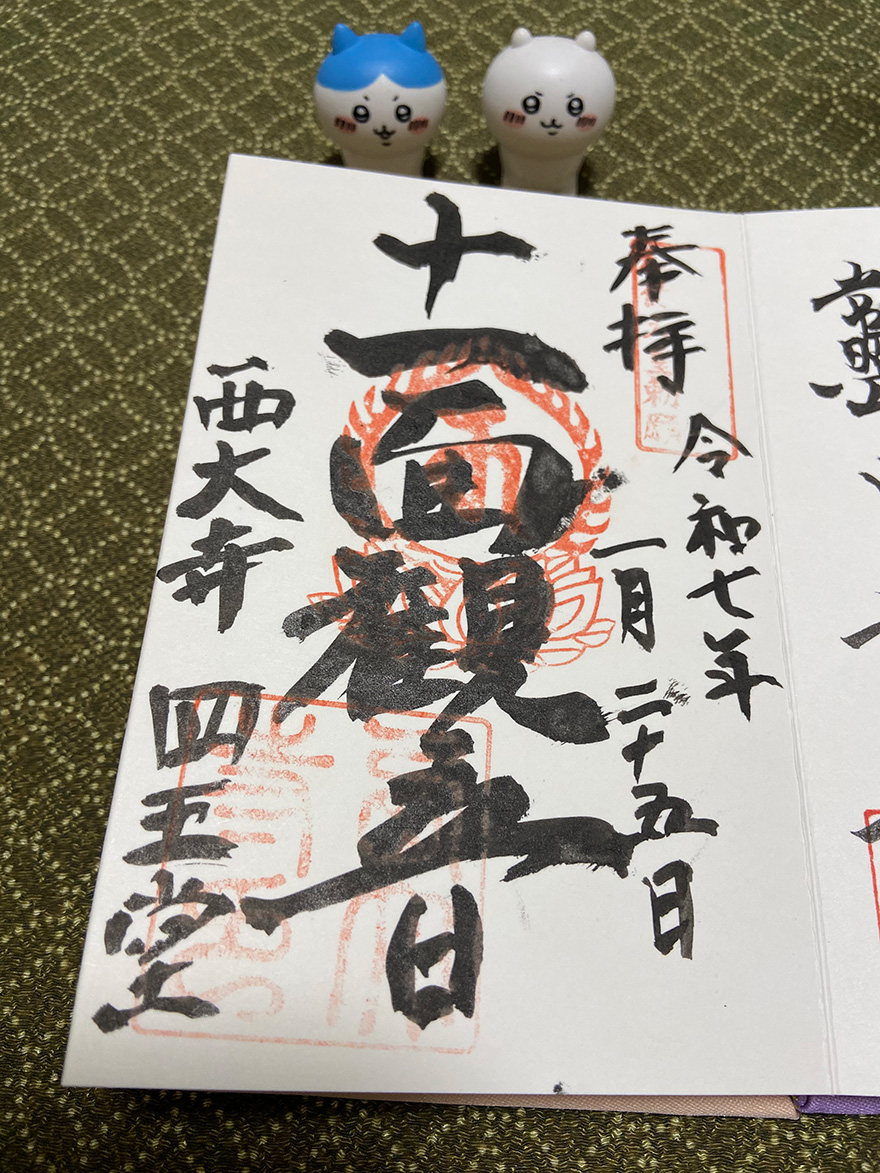 奉拝
令和七年
一月二十五日
十一面観音
西大寺 四王堂